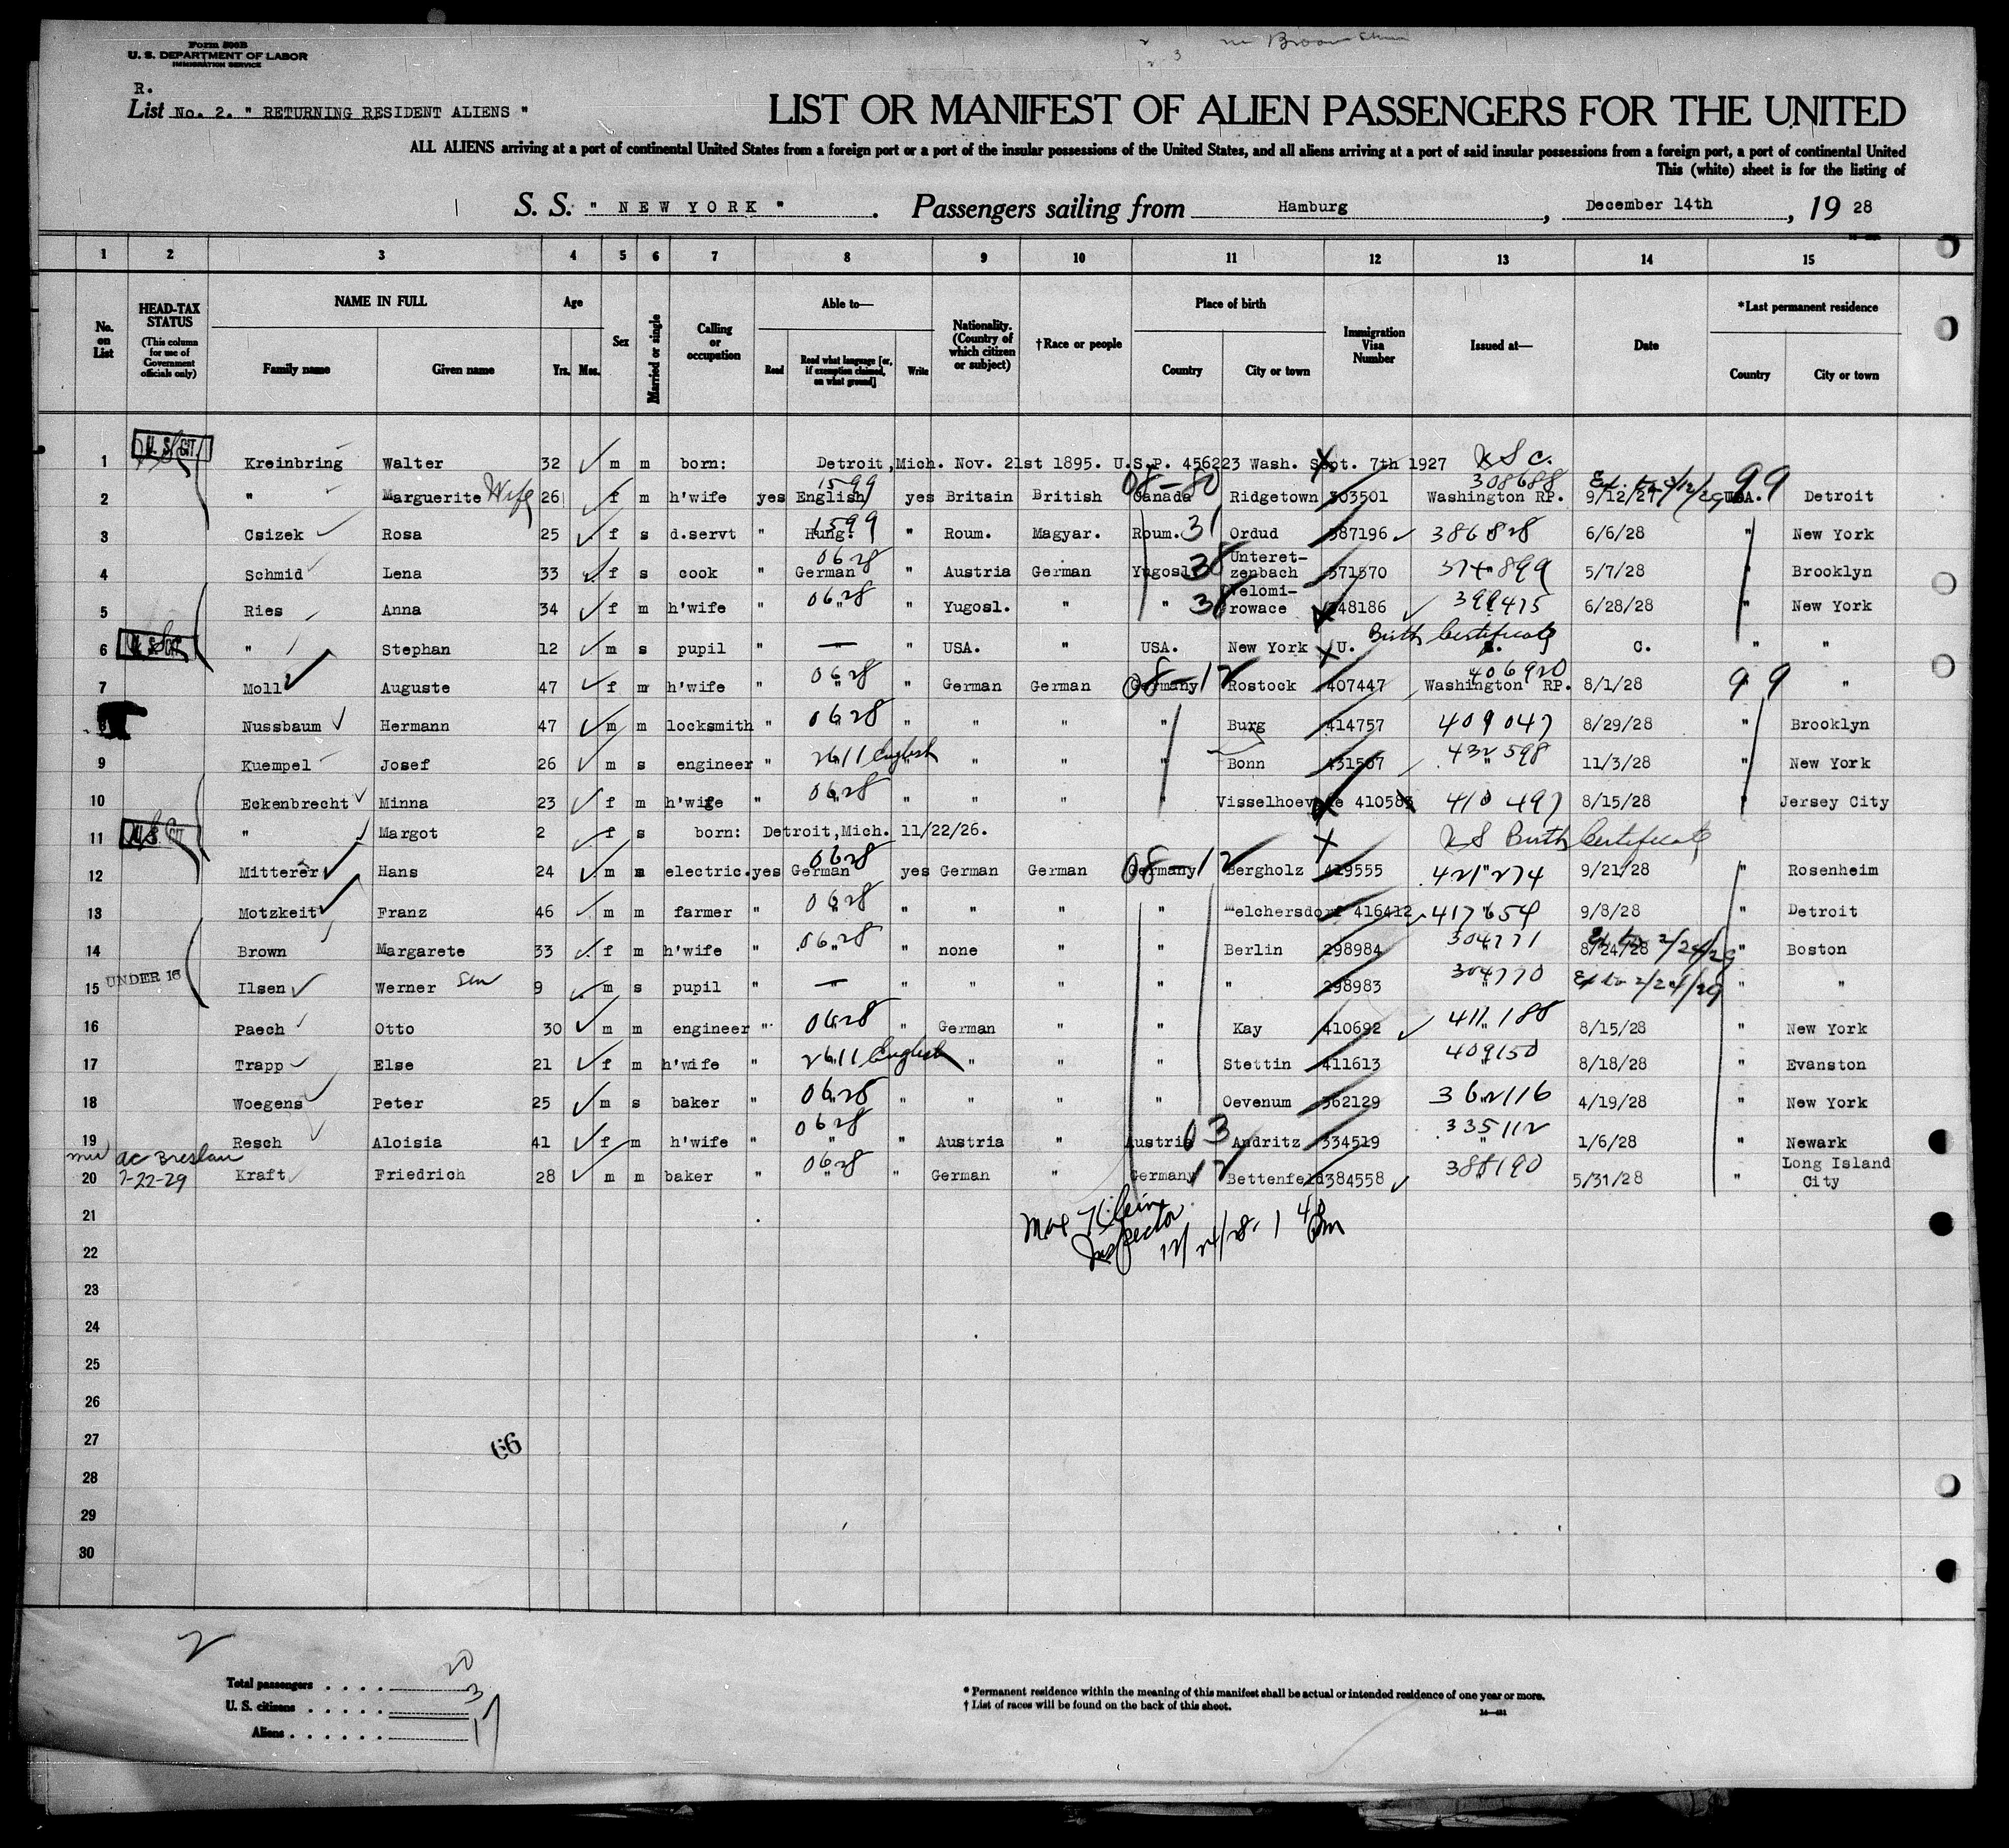 Form 500B
U. S. DEPARTMENT OF LABOR
IMMIGRATION SERVICE
R.
List No. 2. " RETURNING RESIDENT ALIENS "
LIST OR MANIFEST OF ALIEN PASSENGERS FOR THE UNITED
ALL ALIENS arriving at a port of continental United States from a foreign port or a port of the insular possessions of the United States, and all aliens arriving at a port of said insular possessions from a foreign port, a port of continental United
This (white) sheet is for the listing of
S. S. " NEW YORK " . Passengers sailing from Hamburg , December 14th , 19 28
1 2 3 4 5 6 7 8 9 10 11 12 13 14 15
No. on List
HEAD-TAX STATUS (This column for use of Government officials only)
NAME IN FULL
Family name Given name
Age
Yrs. Mos.
Sex
Married or single
Calling or occupation
Able to—
Read Read what language [or, if exemption claimed, on what ground] Write
Nationality. (Country of which citizen or subject)
†Race or people
Place of birth
Country City or town
Immigration Visa Number
Issued at—
Date
*Last permanent residence
Country City or town
1 U. S. CIT. Kreinbring Walter 32 m m born: Detroit, Mich. Nov. 21st 1895. U.S.P. 456223 Wash. Sept. 7th 1927 U S C.
2 " Marguerite Wife 26 f m h'wife yes English 1599 yes Britain British Canada 08-80 Ridgetown 303501 308688 Washington RP. 9/12/27 USA. 99 Detroit
3 Csizek Rosa 25 f s d.servt " Hung. 1599 " Roum. Magyar. Roum. 31 Ordud 387196 386828 6/6/28 " New York
4 Schmid Lena 33 f s cook " German 0628 " Austria German Yugosl. 38 Unteretzenbach 371570 374899 5/7/28 " Brooklyn
5 Ries Anna 34 f m h'wife " " 0628 " Yugosl. " " 38 Velomi-rowace 348186 399475 6/28/28 " New York
6 U. S. CIT. " Stephan 12 m s pupil " — " USA. " USA. New York U. S. C. Birth Certificate " "
7 Moll Auguste 47 f m h'wife " " 0628 " German German Germany 08-12 Rostock 407447 406920 Washington RP. 8/1/28 99 "
8 Nussbaum Hermann 47 m m locksmith " 0628 " " " " Burg 414757 409047 8/29/28 " Brooklyn
9 Kuempel Josef 26 m s engineer " 2611 English " " " " Bonn 431567 432598 11/3/28 " New York
10 Eckenbrecht Minna 23 f m h'wife " " 0628 " " " " Visselhoevede 410583 410497 8/15/28 " Jersey City
11 U. S. CIT. " Margot 2 f s born: Detroit, Mich. 11/22/26. U S Birth Certificate
12 Mitterer Hans 24 m m electric. yes German 0628 yes German German Germany 08-12 Bergholz 419555 421274 9/21/28 " Rosenheim
13 Motzkeit Franz 46 m m farmer " " 0628 " " " " Melchersdorf 416412 417654 9/8/28 " Detroit
14 Brown Margarete 33 f m h'wife " " 0628 " none " " Berlin 298984 304771 8/24/28 Ex to 2/24/29 " Boston
15 UNDER 16 Ilsen Werner Son 9 m s pupil " — " " " " 298983 304770 Ex to 2/24/29 " "
16 Paech Otto 30 m m engineer " 0628 " German " " Kay 410692 411188 8/15/28 " New York
17 Trapp Else 21 f m h'wife " 2611 English " " " Stettin 411613 409150 8/18/28 " Evanston
18 Woegens Peter 25 m s baker " " 0628 " " " " Oevenum 362129 362116 4/19/28 " New York
19 Resch Aloisia 41 f m h'wife " " 0628 " Austria " Austria 03 Andritz 334519 335112 1/6/28 " Newark
ac Breslau
20 7-22-29 Kraft Friedrich 28 m m baker " " 0628 " German " Germany 12 Bettenfeld 384558 388190 5/31/28 " Long Island City
21
Max Klein
Inspector
12/24/28.
22
23
24
25
26
27
66
28
29
30
2
Total passengers . . . . 20
U. S. citizens . . . . . 3
Aliens . . . . . . 17
* Permanent residence within the meaning of this manifest shall be actual or intended residence of one year or more.
† List of races will be found on the back of this sheet.